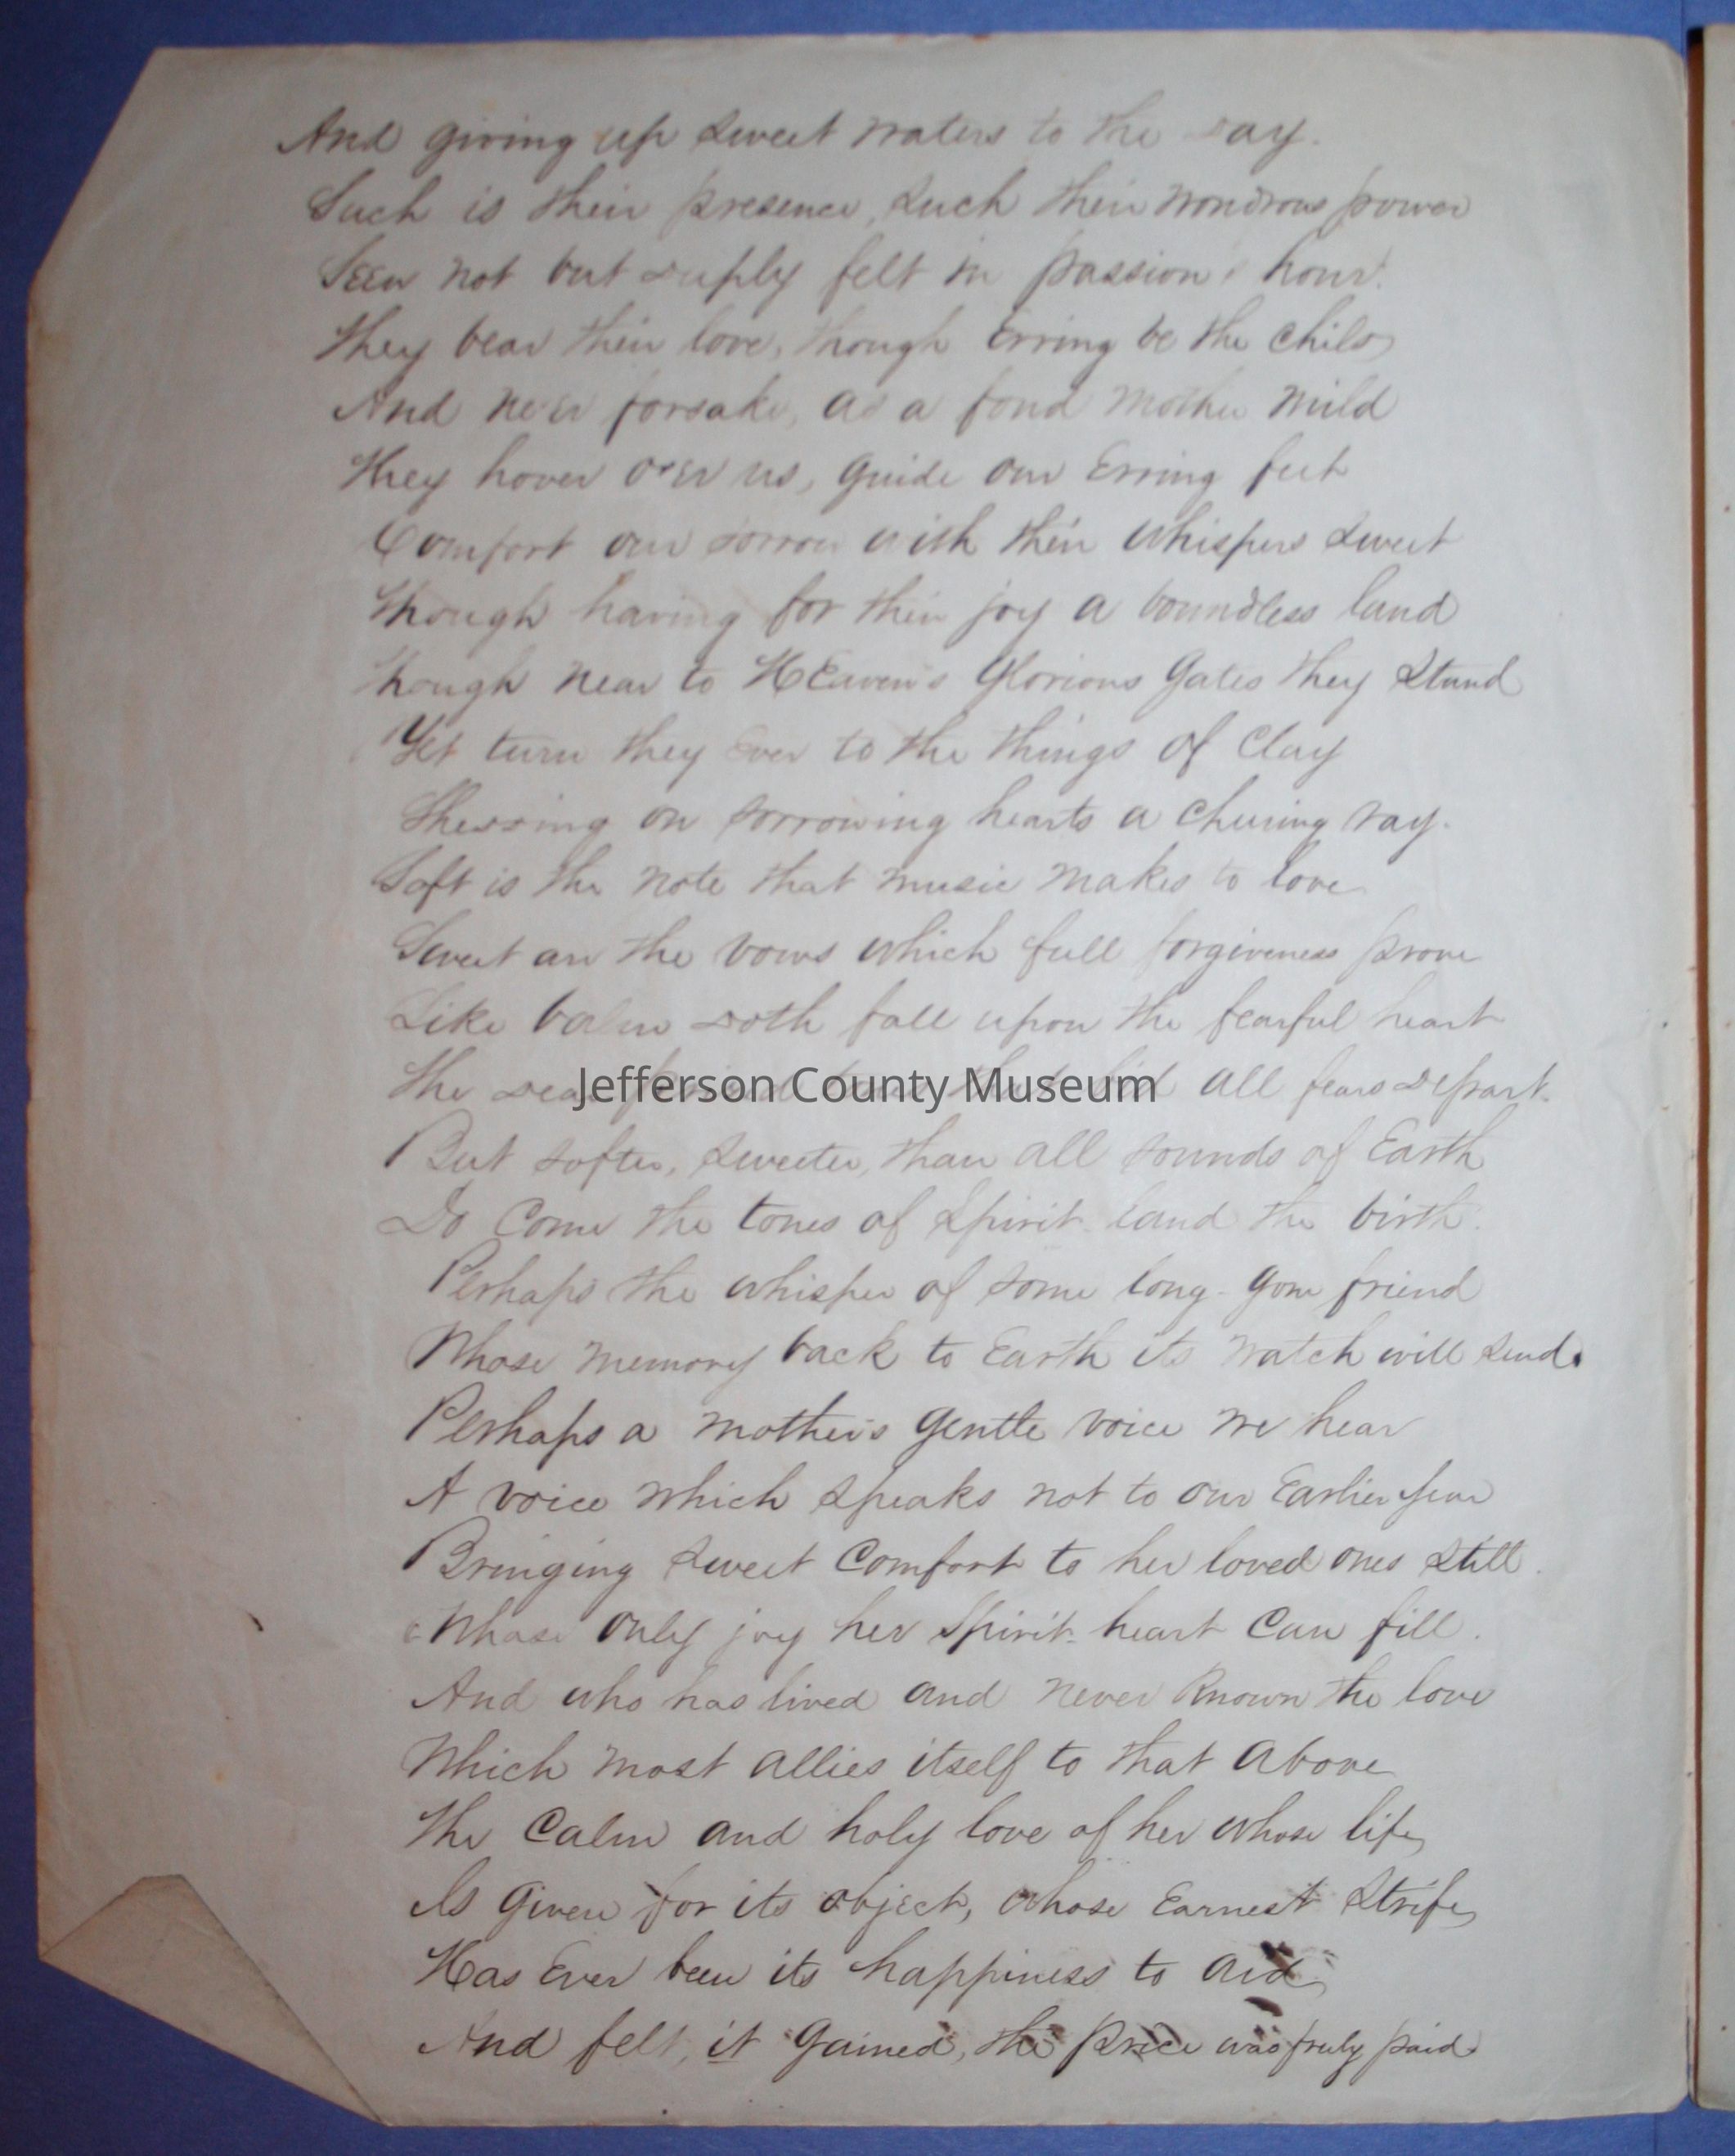 And giving up sweet waters to the day.
Such is their presence, such their wondrous power
Seen not but deeply felt in passion's hour.
They bear their love, though Erring be the child
And ne'er forsake, as a fond Mother mild
They hover o'er us, guide our Erring feet
Comfort our sorrow with their whispers sweet
Though having for their joy a boundless land
Though near to Heaven's Glorious Gates they stand
Yet turn they Ever to the things of Clay
Shedding on sorrowing hearts a cheering ray.
Soft is the note that music makes to love
Sweet are the vows which full forgiveness prove
Like balm doth fall upon the fearful heart
The dear all fears depart.
Jefferson County Museum
But softer, sweeter, than all sounds of Earth
Do Come the tones of Spirit-land the birth.
Perhaps the whisper of some long-gone friend
Whose memory back to Earth its watch will send.
Perhaps a mother's gentle voice we hear
A voice which speaks not to our Earlier
Bringing sweet Comfort to her loved ones still.
Whose only joy her Spirit-heart Can fill.
And who has lived and never Known the love
Which most allies itself to that above
The Calm and holy love of her whose life
Is Given for its object, whose Earnest Strife
Has Ever been its happiness to aid
And felt, it Gained, the price was truly paid.